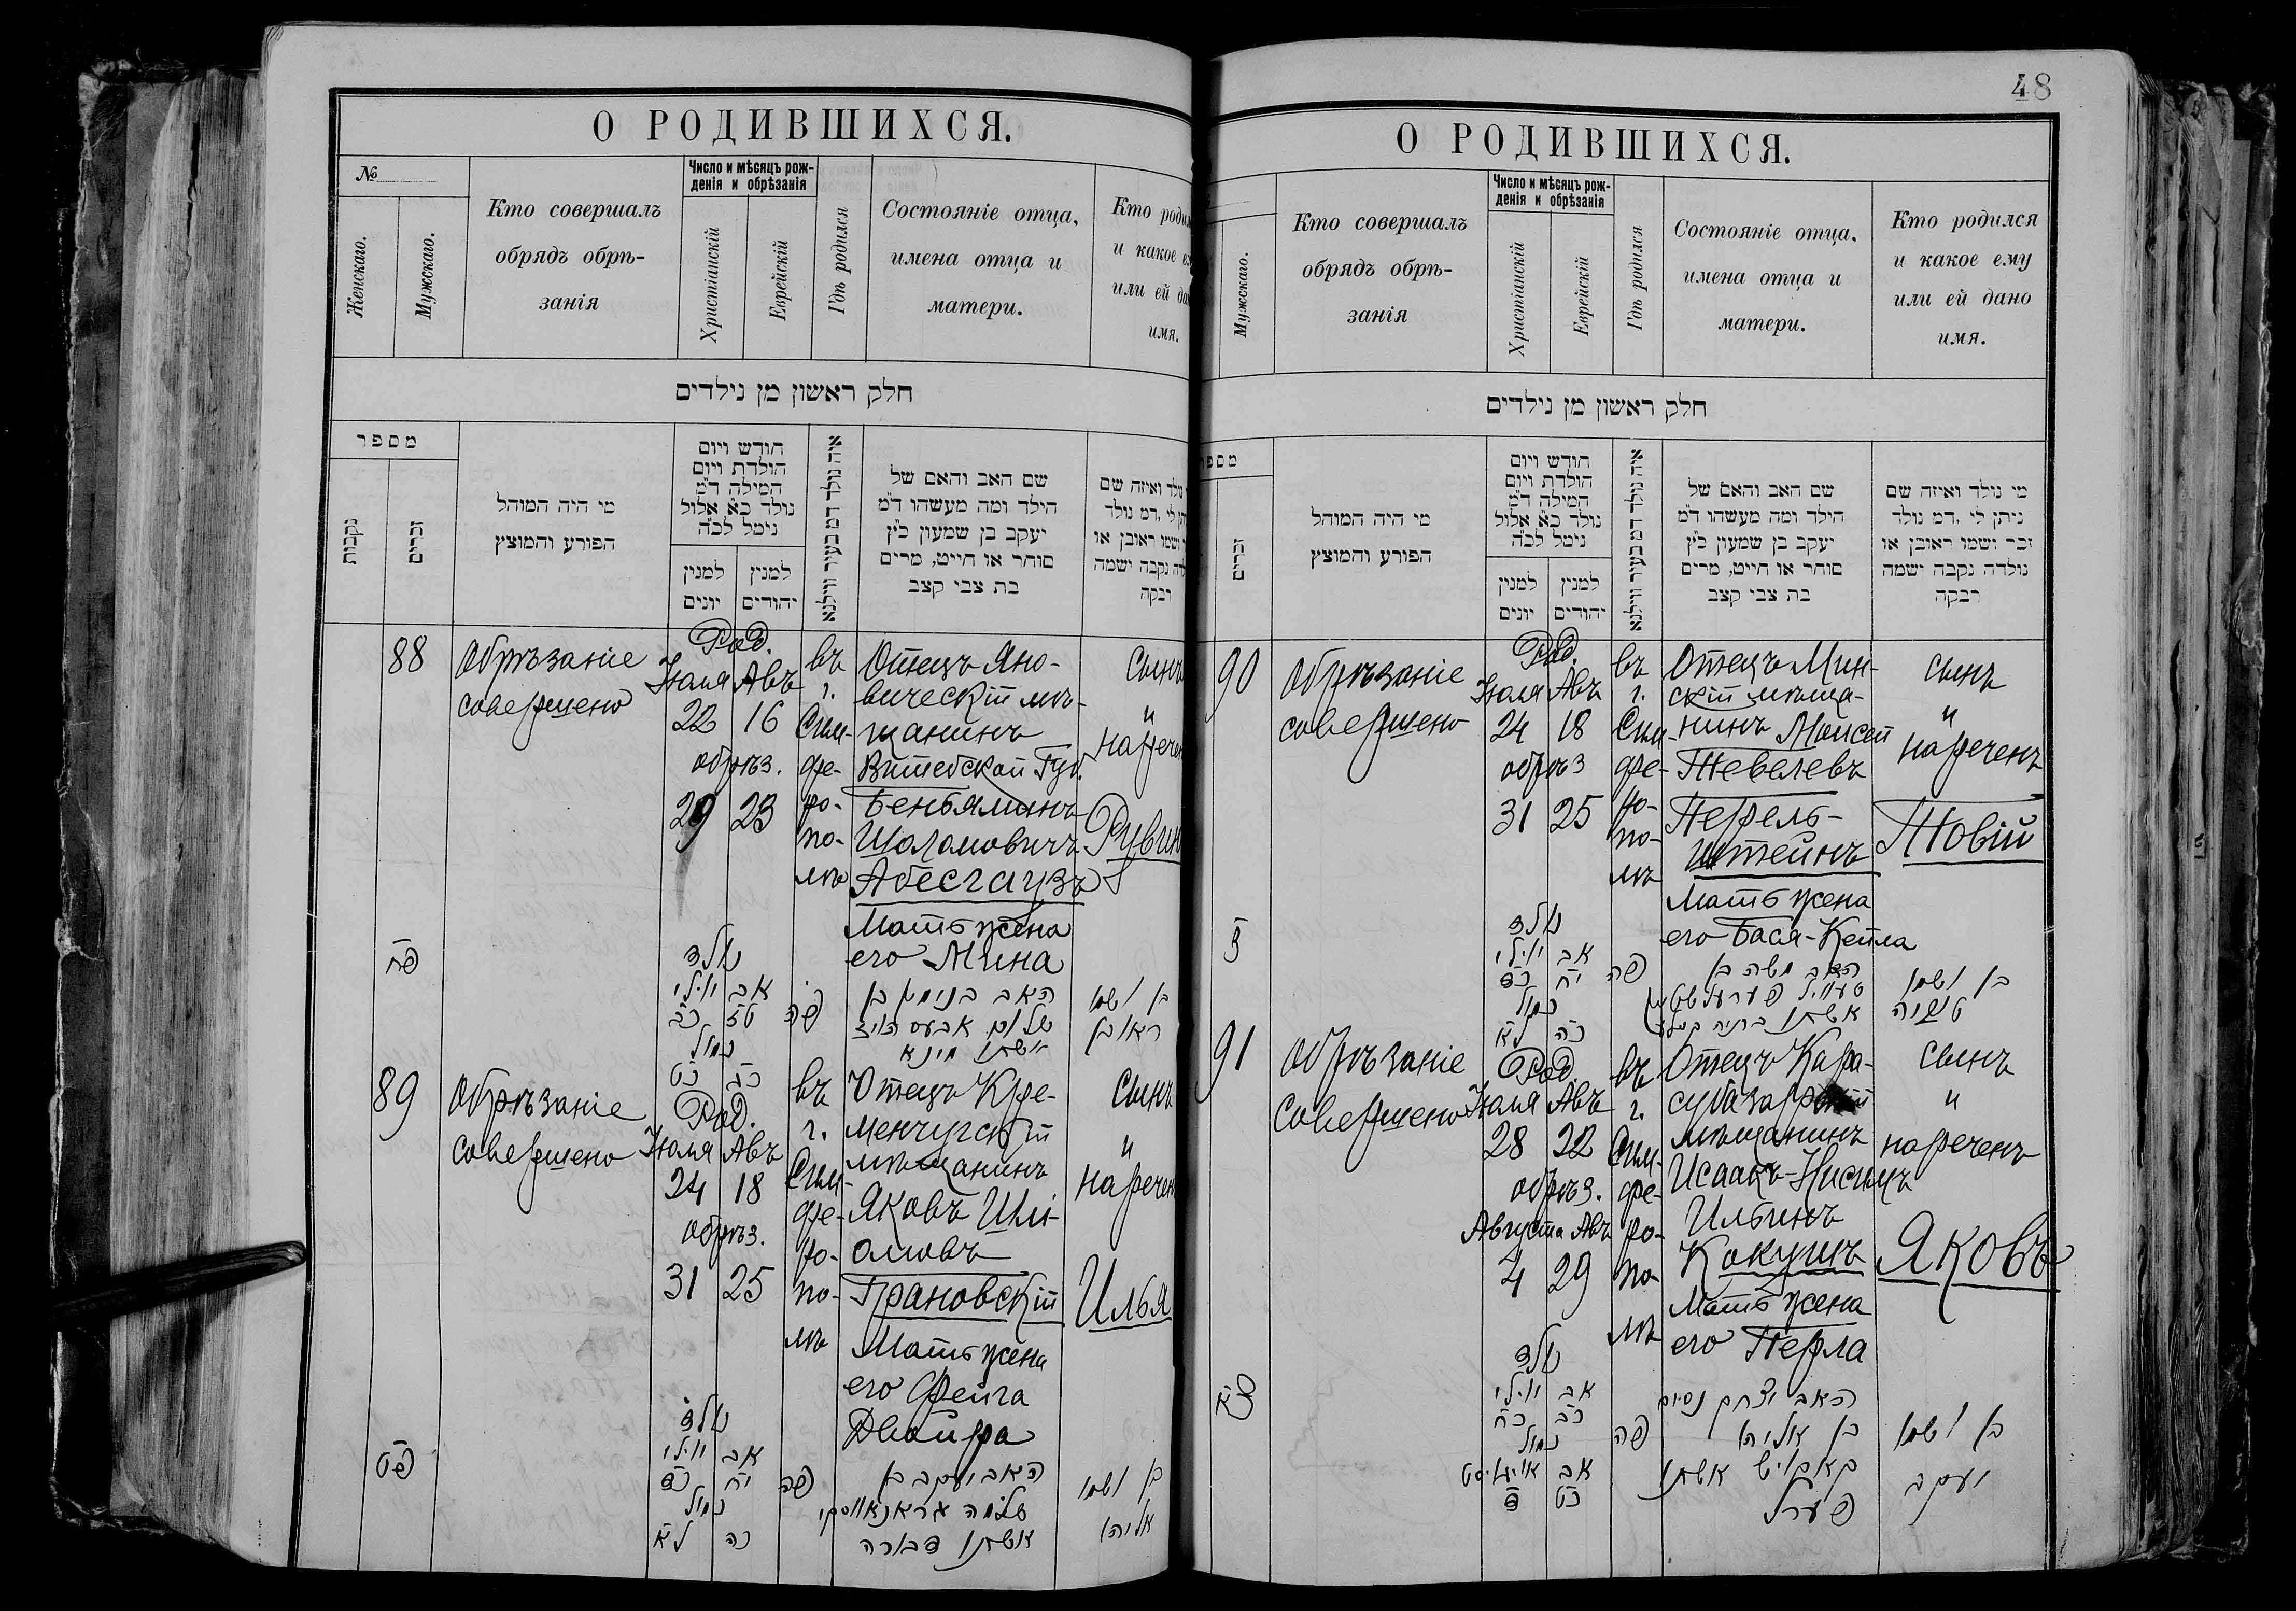 О РОДИВШИХСЯ.
№
Женскаго.
Мужскаго.
Кто совершалъ
обрядъ обрѣ-
занія
Число и мѣсяцъ рож-
денія и обрѣзанія
Христіанскій
Еврейскій
Гдѣ родился
Состояніе отца,
имена отца и
матери.
Кто роди
и какое е
или ей да
имя.
חלק ראשון מן נילדים
מספר
נקבות
זכרים
מי היה המוהל
הפורע והמוצץ
חודש ויום
הולדת ויום
המילה ד״מ
נולד כ״א אלול
נימל לכ״ה
למנין
יונים
למנין
יהודים
איה נולד דמ בעיר ווילנא
שם האב והאם של
הילד ומה מעשהו ד״מ
יעקב בן שמעון כ״ץ
סוחר או חייט, מרים
בת צבי קצב
נולד ואיזה שם
תן לי .דמ נולד
ושמו ראובן או
נקבה ושמה
רבקה
88
Обрѣзаніе
совершено
Род.
Іюля Авъ
22 16
обрѣз.
29 23
въ
г.
Сим-
фе-
ро-
по-
лѣ
Отецъ Яно-
вическій мѣ-
щанинъ
Витебской Губ.
Беньяминъ
Шоломовичъ
Абесгаузъ
Мать жена
его Мина
Сынъ
и
наречен
Рувин
פח
נולד
אב יולי
טז כב
נמול
כג כט
פה
האב בנימין בן
שלום אבעסהויז
אשתו מינא
בן ושמו
ראובן
89
Обрѣзаніе
совершено
Род.
Іюля Авъ
24 18
обрѣз.
31 25
въ
г.
Сим-
фе-
ро-
по-
лѣ
Отецъ Кре-
менчугскій
мѣщанинъ
Яковъ Шлі-
омовъ
Грановскій
Мать жена
его Фейга
Двойра
Сынъ
и
наречен
Илья
פט
נולד
אב יולי
יח כד
נמול
כה לא
פה
האב יעקב בן
שלמה גראנאווסקי
אשתו דבורה
בן ושמו
אליהו
48
О РОДИВШИХСЯ.
Мужскаго.
Кто совершалъ
обрядъ обрѣ-
занія
Число и мѣсяцъ рож-
денія и обрѣзанія
Христіанскій
Еврейскій
Гдѣ родился
Состояніе отца,
имена отца и
матери.
Кто родился
и какое ему
или ей дано
имя.
חלק ראשון מן נילדים
מספר
זכרים
מי היה המוהל
הפורע והמוצץ
חודש ויום
הולדת ויום
המילה ד״מ
נולד כ״א אלול
נימל לכ״ה
למנין
יונים
למנין
יהודים
איה נולד דמ בעיר ווילנא
שם האב והאם של
הילד ומה מעשהו ד״מ
יעקב בן שמעון כ״ץ
סוחר או חייט, מרים
בת צבי קצב
מי נולד ואיזה שם
ניתן לי .דמ נולד
זכר ושמו ראובן או
נולדה נקבה ישמה
רבקה
90
Обрѣзаніе
совершено
Род.
Іюля Авъ
24 18
обрѣз
31 25
въ
г.
Сим-
фе-
ро-
по-
лѣ
Отецъ Мин-
скій мѣща-
нинъ Моисей
Тевелевъ
Перель-
штейнъ
Мать жена
его Бася-Кейла
сынъ
и
нареченъ
Товій
צ
נולד
אב יולי
יח כד
נמול
כה לא
פה
האב משה בן
טעוויל פערעלשטיין
אשתו
בן ושמו
טוביה
91
Обрѣзаніе
совершено
Род
Іюля Авъ
28 22
обрѣз.
Августа Авъ
4 29
въ
г.
Сим-
фе-
ро-
по-
лѣ
Отецъ Кара-
субазарскій
мѣщанинъ
Исаакъ-Нисимъ
Ильинъ
Кокушъ
Мать жена
его Перла
сынъ
и
нареченъ
Яковъ
צא
נולד
אב יולי
כב כח
נמול
אב אויגוסט
כט ד
פה
האב יצחק נסים
בן אליהו
קאקוש אשתו
פערל
בן ושמו
יעקב